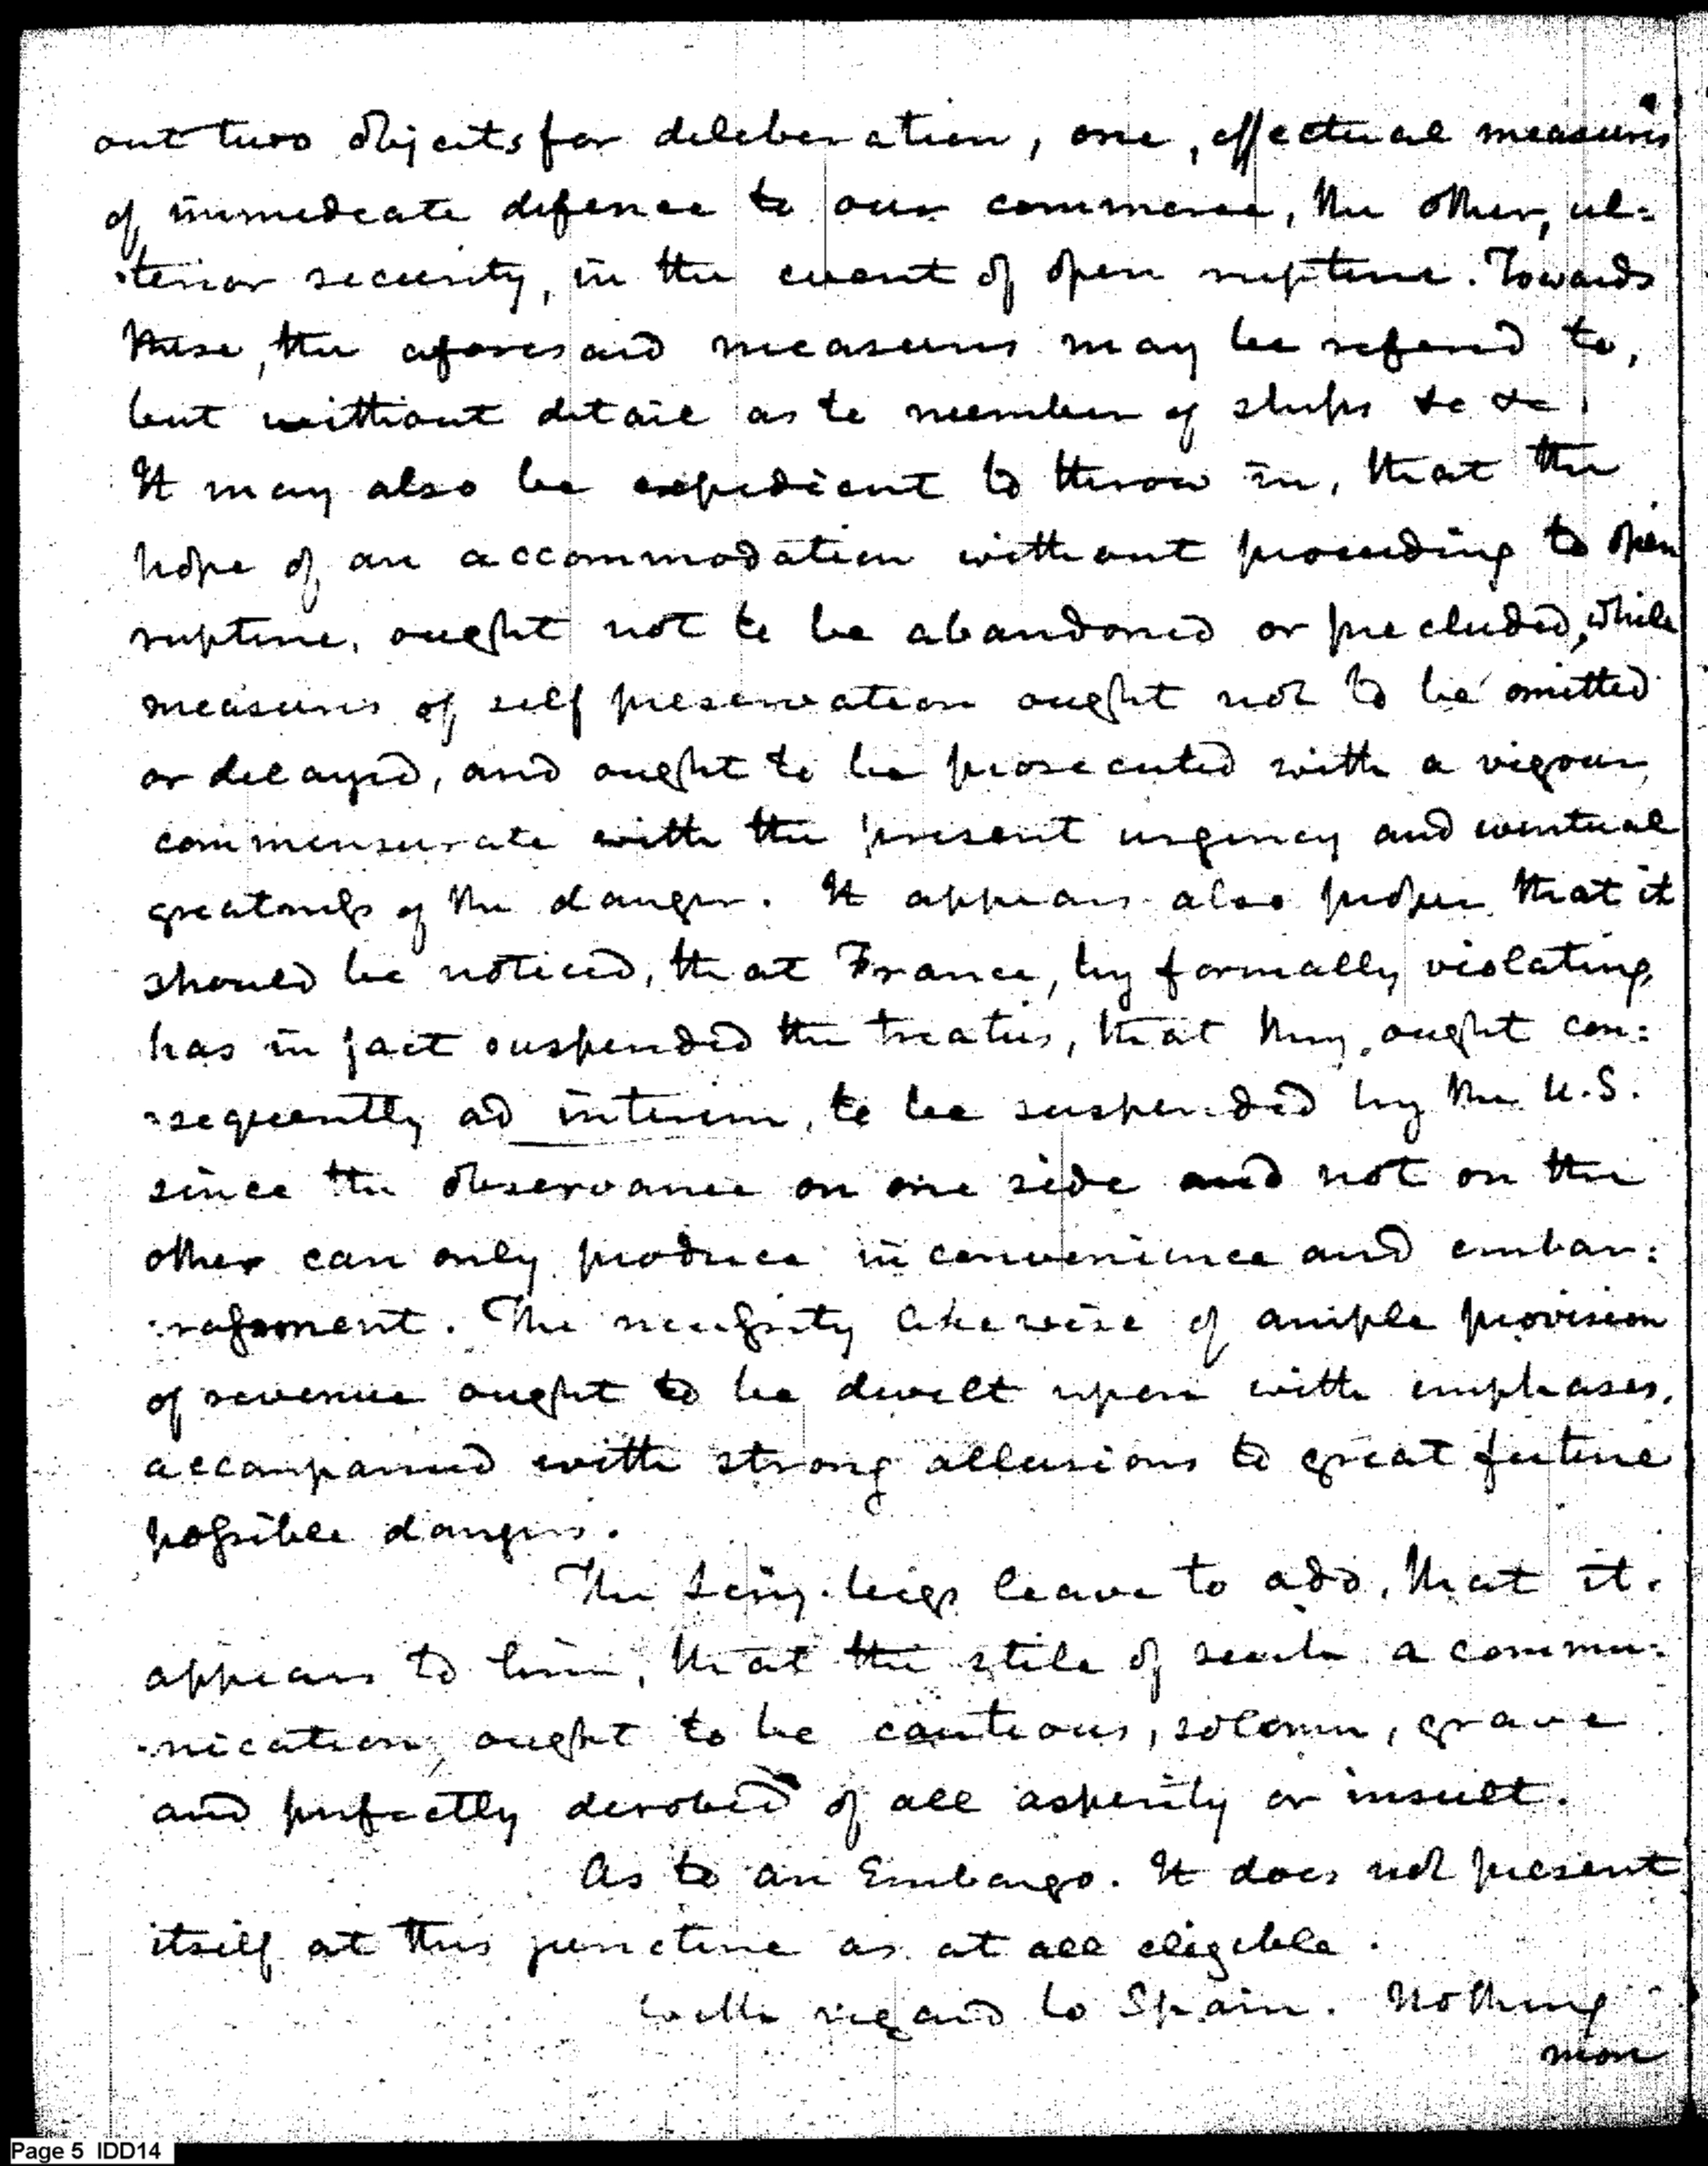 out two objects for deliberation, one, effectual measures
of immediate defence to our commerce, the other, ul=
=terior security, in the event of open rupture. Towards
these, the aforesaid measures may be referred to,
but without detail as to number of ships &c &c.
It may also be expedient to throw in, that the
hope of an accommodation without proceeding to open
rupture, ought not to be abandoned or precluded, while
measures of self preservation ought not to be omitted
or delayed, and ought to be prosecuted with a vigour
commensurate with the present urgency and eventual
greatness of the danger. It appears also proper that it
should be noticed, that France, by formally violating,
has in fact suspended the treaties, that they, ought con:
=sequently ad interim, to be suspended by the U.S.
since the observance on one side and not on the
other can only produce inconvenience and embar:
:rassment. The necessity likewise of ample provision
of revenue ought to be dwelt upon with emphases,
accompanied with strong allusions to great future
possible dangers.
The Secy. begs leave to add, that it
appears to him, that the stile of such a commu:
=nication, ought to be cautious, solemn, grave
and perfectly devobid of all asperity or insult.
As to an Embargo. It does not present
itself at this juncture as at all eligible.
With regard to Spain. Nothing
more
Page 5 IDD14